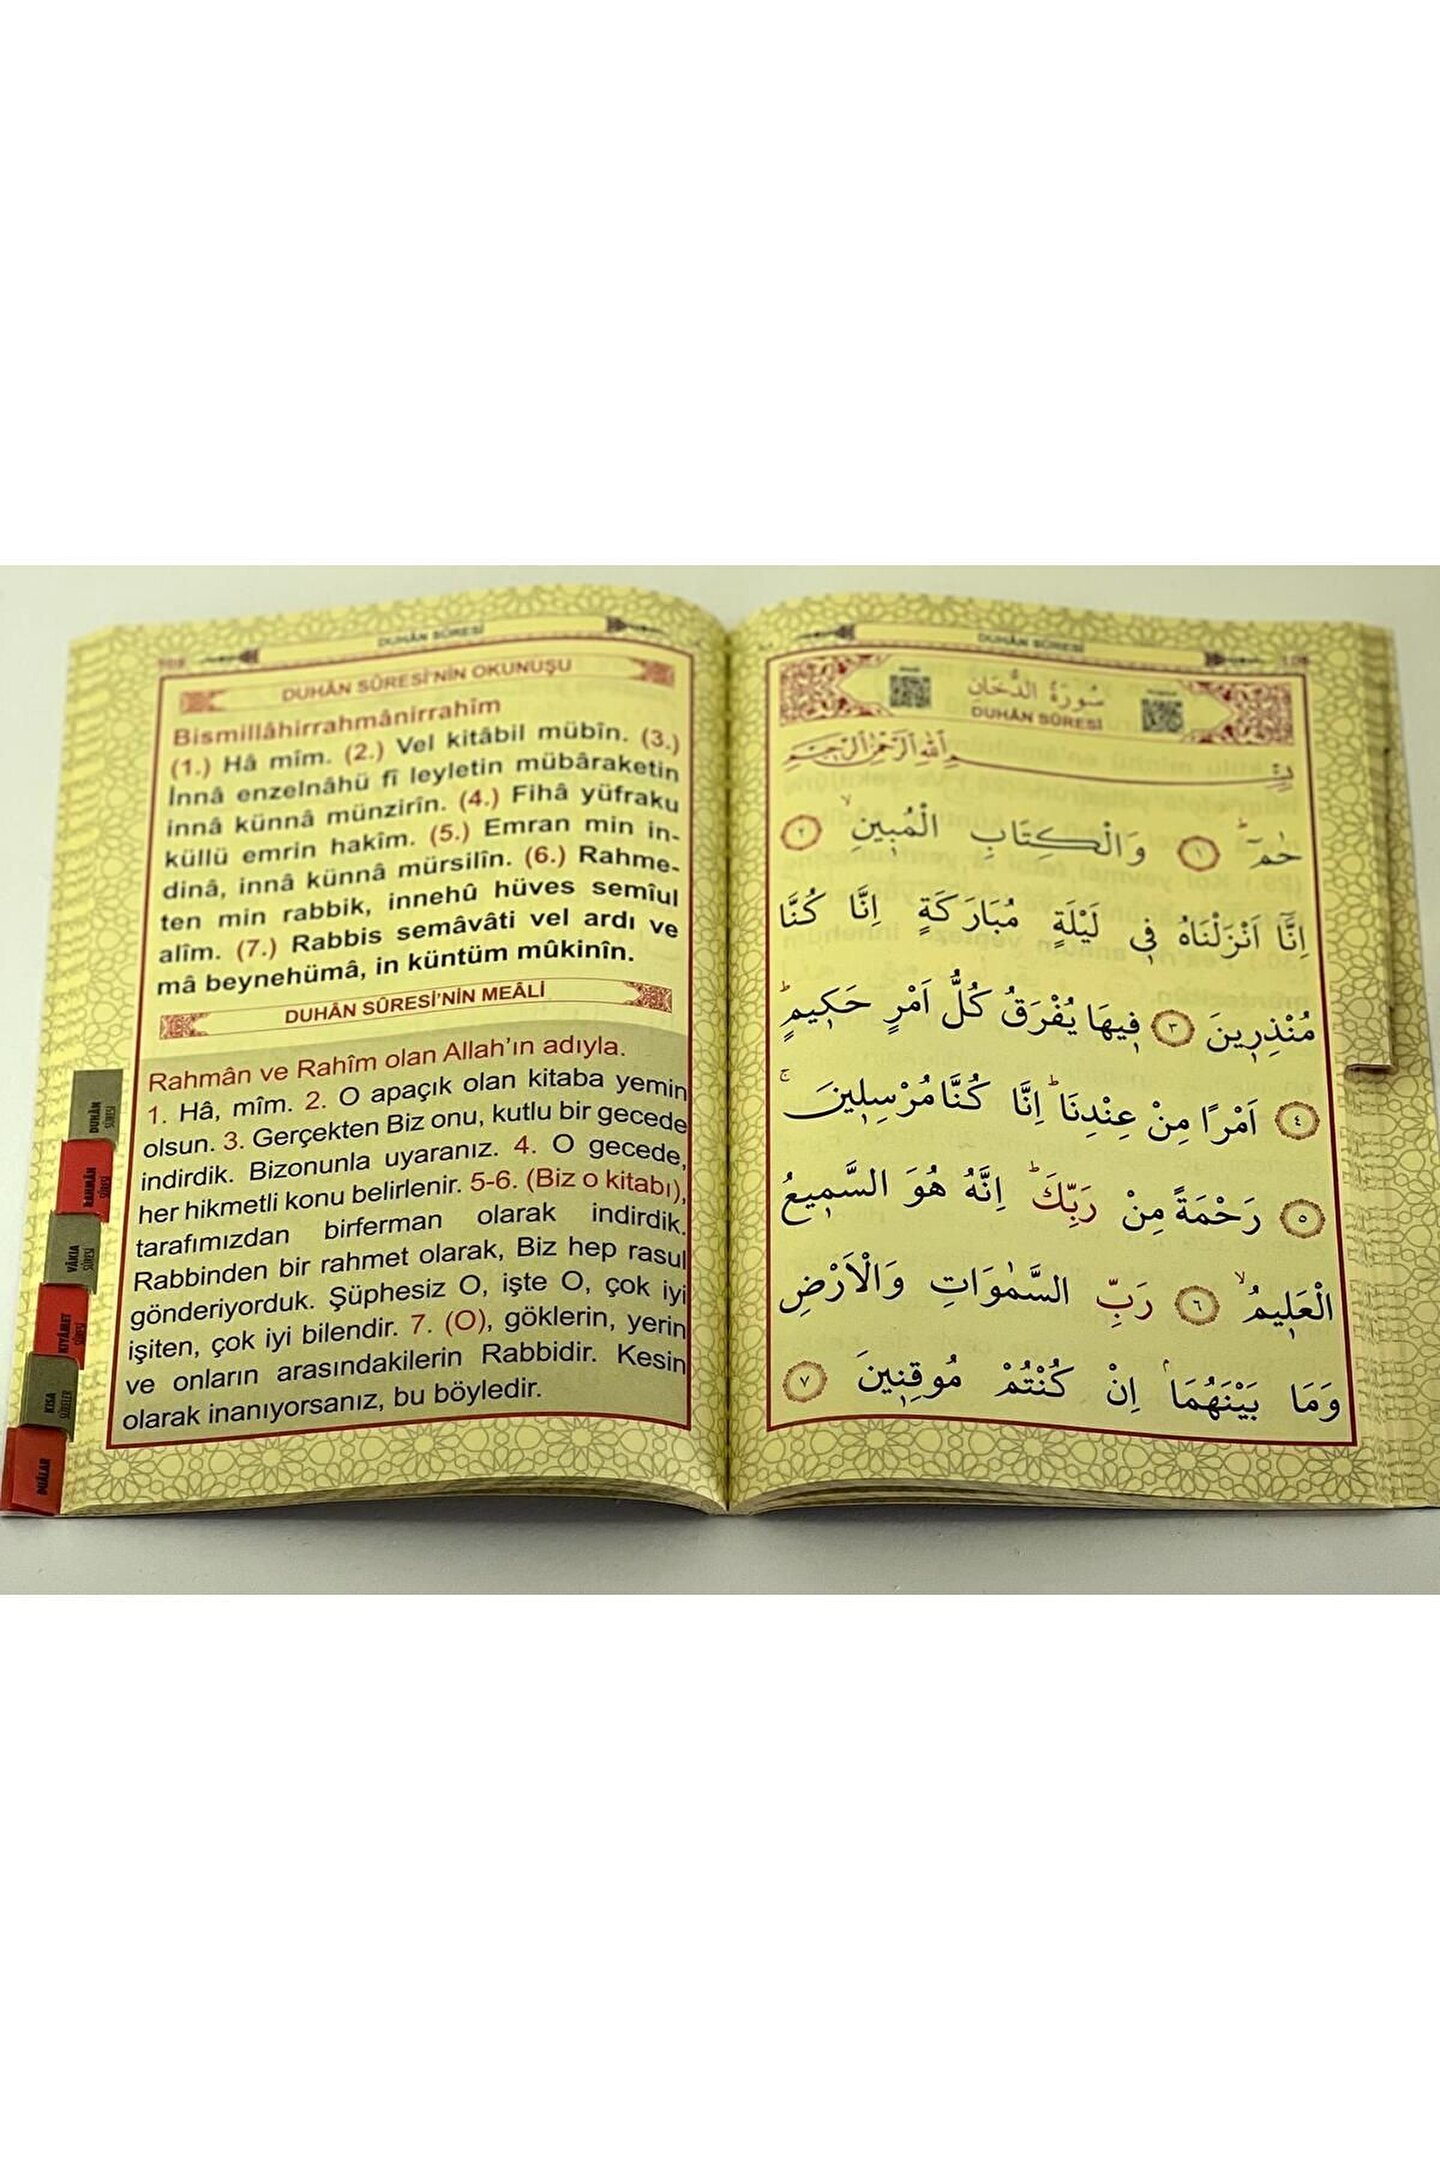 DUHÂN SÛRESİ
DUHÂN SÛRESİ'NİN OKUNUŞU
Bismillâhirrahmânirrahîm
(1.) Hâ mîm. (2.) Vel kitâbil mübîn. (3.)
İnnâ enzelnâhü fî leyletin mübâraketin
innâ künnâ münzirîn. (4.) Fîhâ yüfraku
küllü emrin hakîm. (5.) Emran min in-
dinâ, innâ künnâ mürsilîn. (6.) Rahme-
ten min rabbik, innehû hüves semîul
alîm. (7.) Rabbis semâvâti vel ardı ve
mâ beynehümâ, in küntüm mûkinîn.
DUHÂN SÛRESİ'NİN MEÂLİ
Rahmân ve Rahîm olan Allah'ın adıyla.
1. Hâ, mîm. 2. O apaçık olan kitaba yemin
olsun. 3. Gerçekten Biz onu, kutlu bir gecede
indirdik. Bizonunla uyaranız. 4. O gecede,
her hikmetli konu belirlenir. 5-6. (Biz o kitabı),
tarafımızdan birferman olarak indirdik.
Rabbinden bir rahmet olarak, Biz hep rasul
gönderiyorduk. Şüphesiz O, işte O, çok iyi
işiten, çok iyi bilendir. 7. (O), göklerin, yerin
ve onların arasındakilerin Rabbidir. Kesin
olarak inanıyorsanız, bu böyledir.
DUHÂN SÛRESİ
RAHMÂN SÛRESİ
VÂKIA SÛRESİ
KIYÂMET SÛRESİ
KISA SÛRELER
DUÂLAR
DUHÂN SÛRESİ
سُورَةُ الدُّخَانِ
DUHÂN SÛRESİ
بِسْمِ اللهِ الرَّحْمٰنِ الرَّحِيمِ
حٰمٓ ﴿١﴾ وَالْكِتَابِ الْمُبِينِ ﴿٢﴾
اِنَّٓا اَنْزَلْنَاهُ فِي لَيْلَةٍ مُبَارَكَةٍ اِنَّا كُنَّا
مُنْذِرِينَ ﴿٣﴾ فِيهَا يُفْرَقُ كُلُّ اَمْرٍ حَكِيمٍ
﴿٤﴾ اَمْرًا مِنْ عِنْدِنَا اِنَّا كُنَّا مُرْسِلِينَ
﴿٥﴾ رَحْمَةً مِنْ رَبِّكَ اِنَّهُ هُوَ السَّمِيعُ
الْعَلِيمُ ﴿٦﴾ رَبِّ السَّمٰوَاتِ وَالْاَرْضِ
وَمَا بَيْنَهُمَا اِنْ كُنْتُمْ مُوقِنِينَ ﴿٧﴾